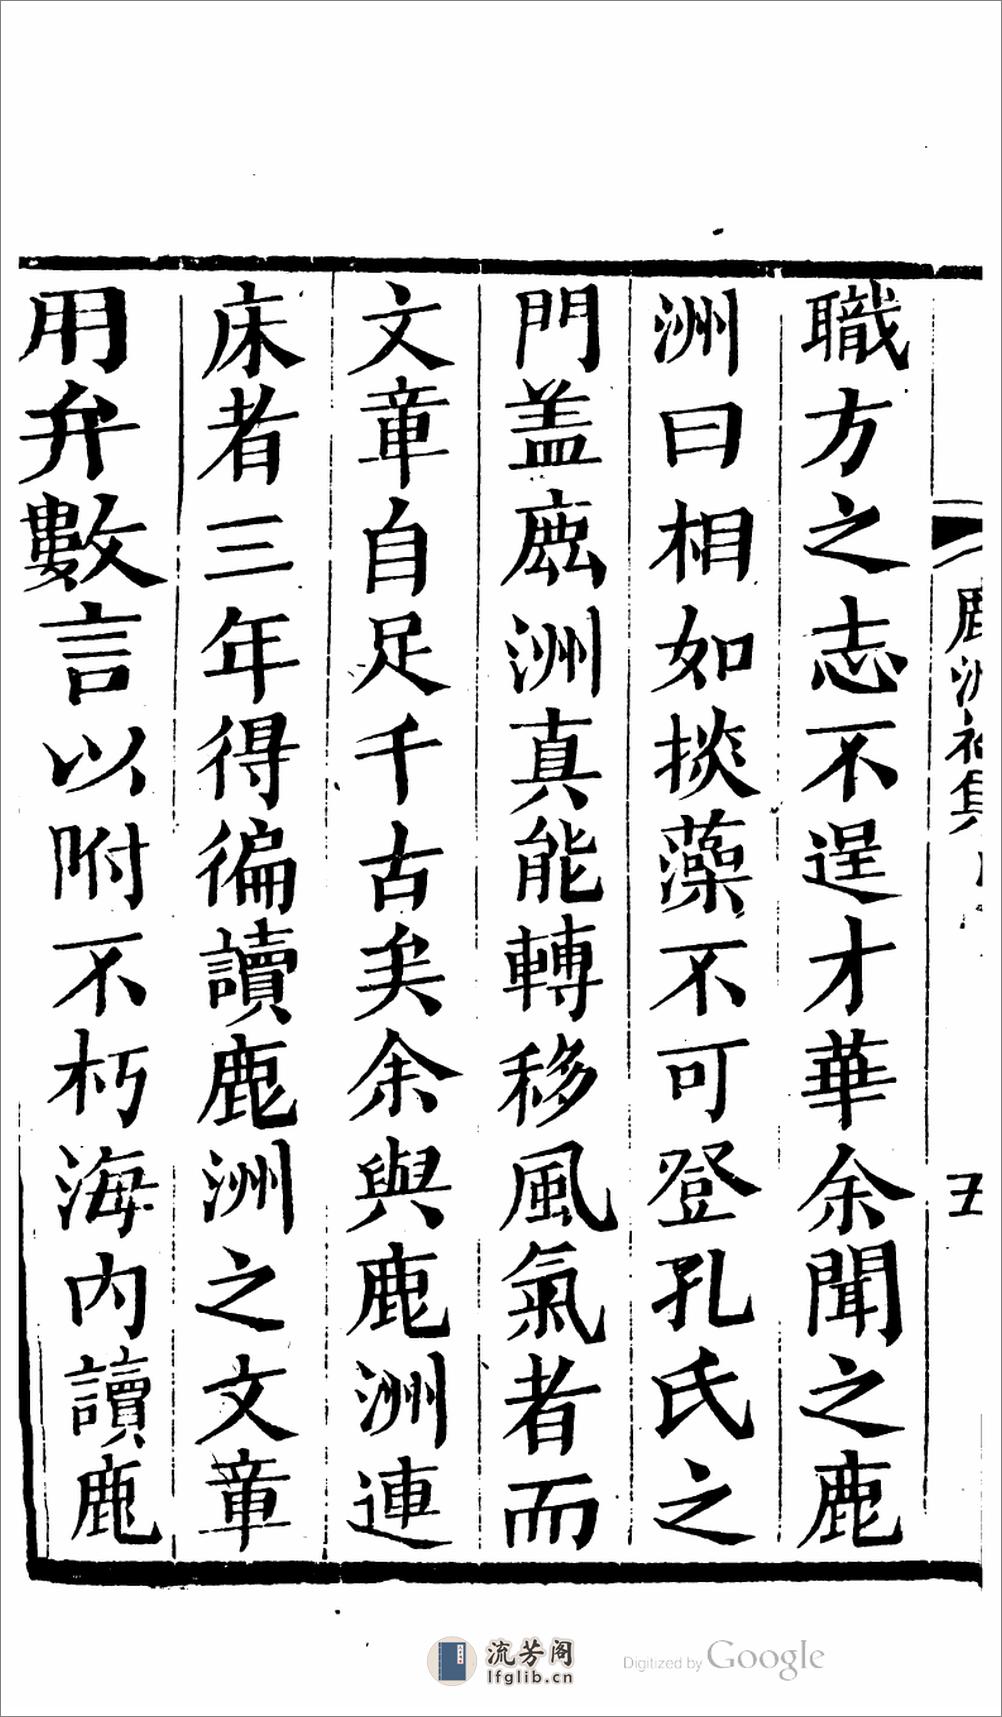 職方之志不逞才華余聞之鹿
洲曰相如掞藻不可登孔氏之
門盖鹿洲真能轉移風氣者而
文章自足千古矣余與鹿洲連
床者三年得徧讀鹿洲之文章
用弁數言以附不朽海内讀鹿
鹿洲初集
五
流芳阁
lfglib.cn
Digitized by Google